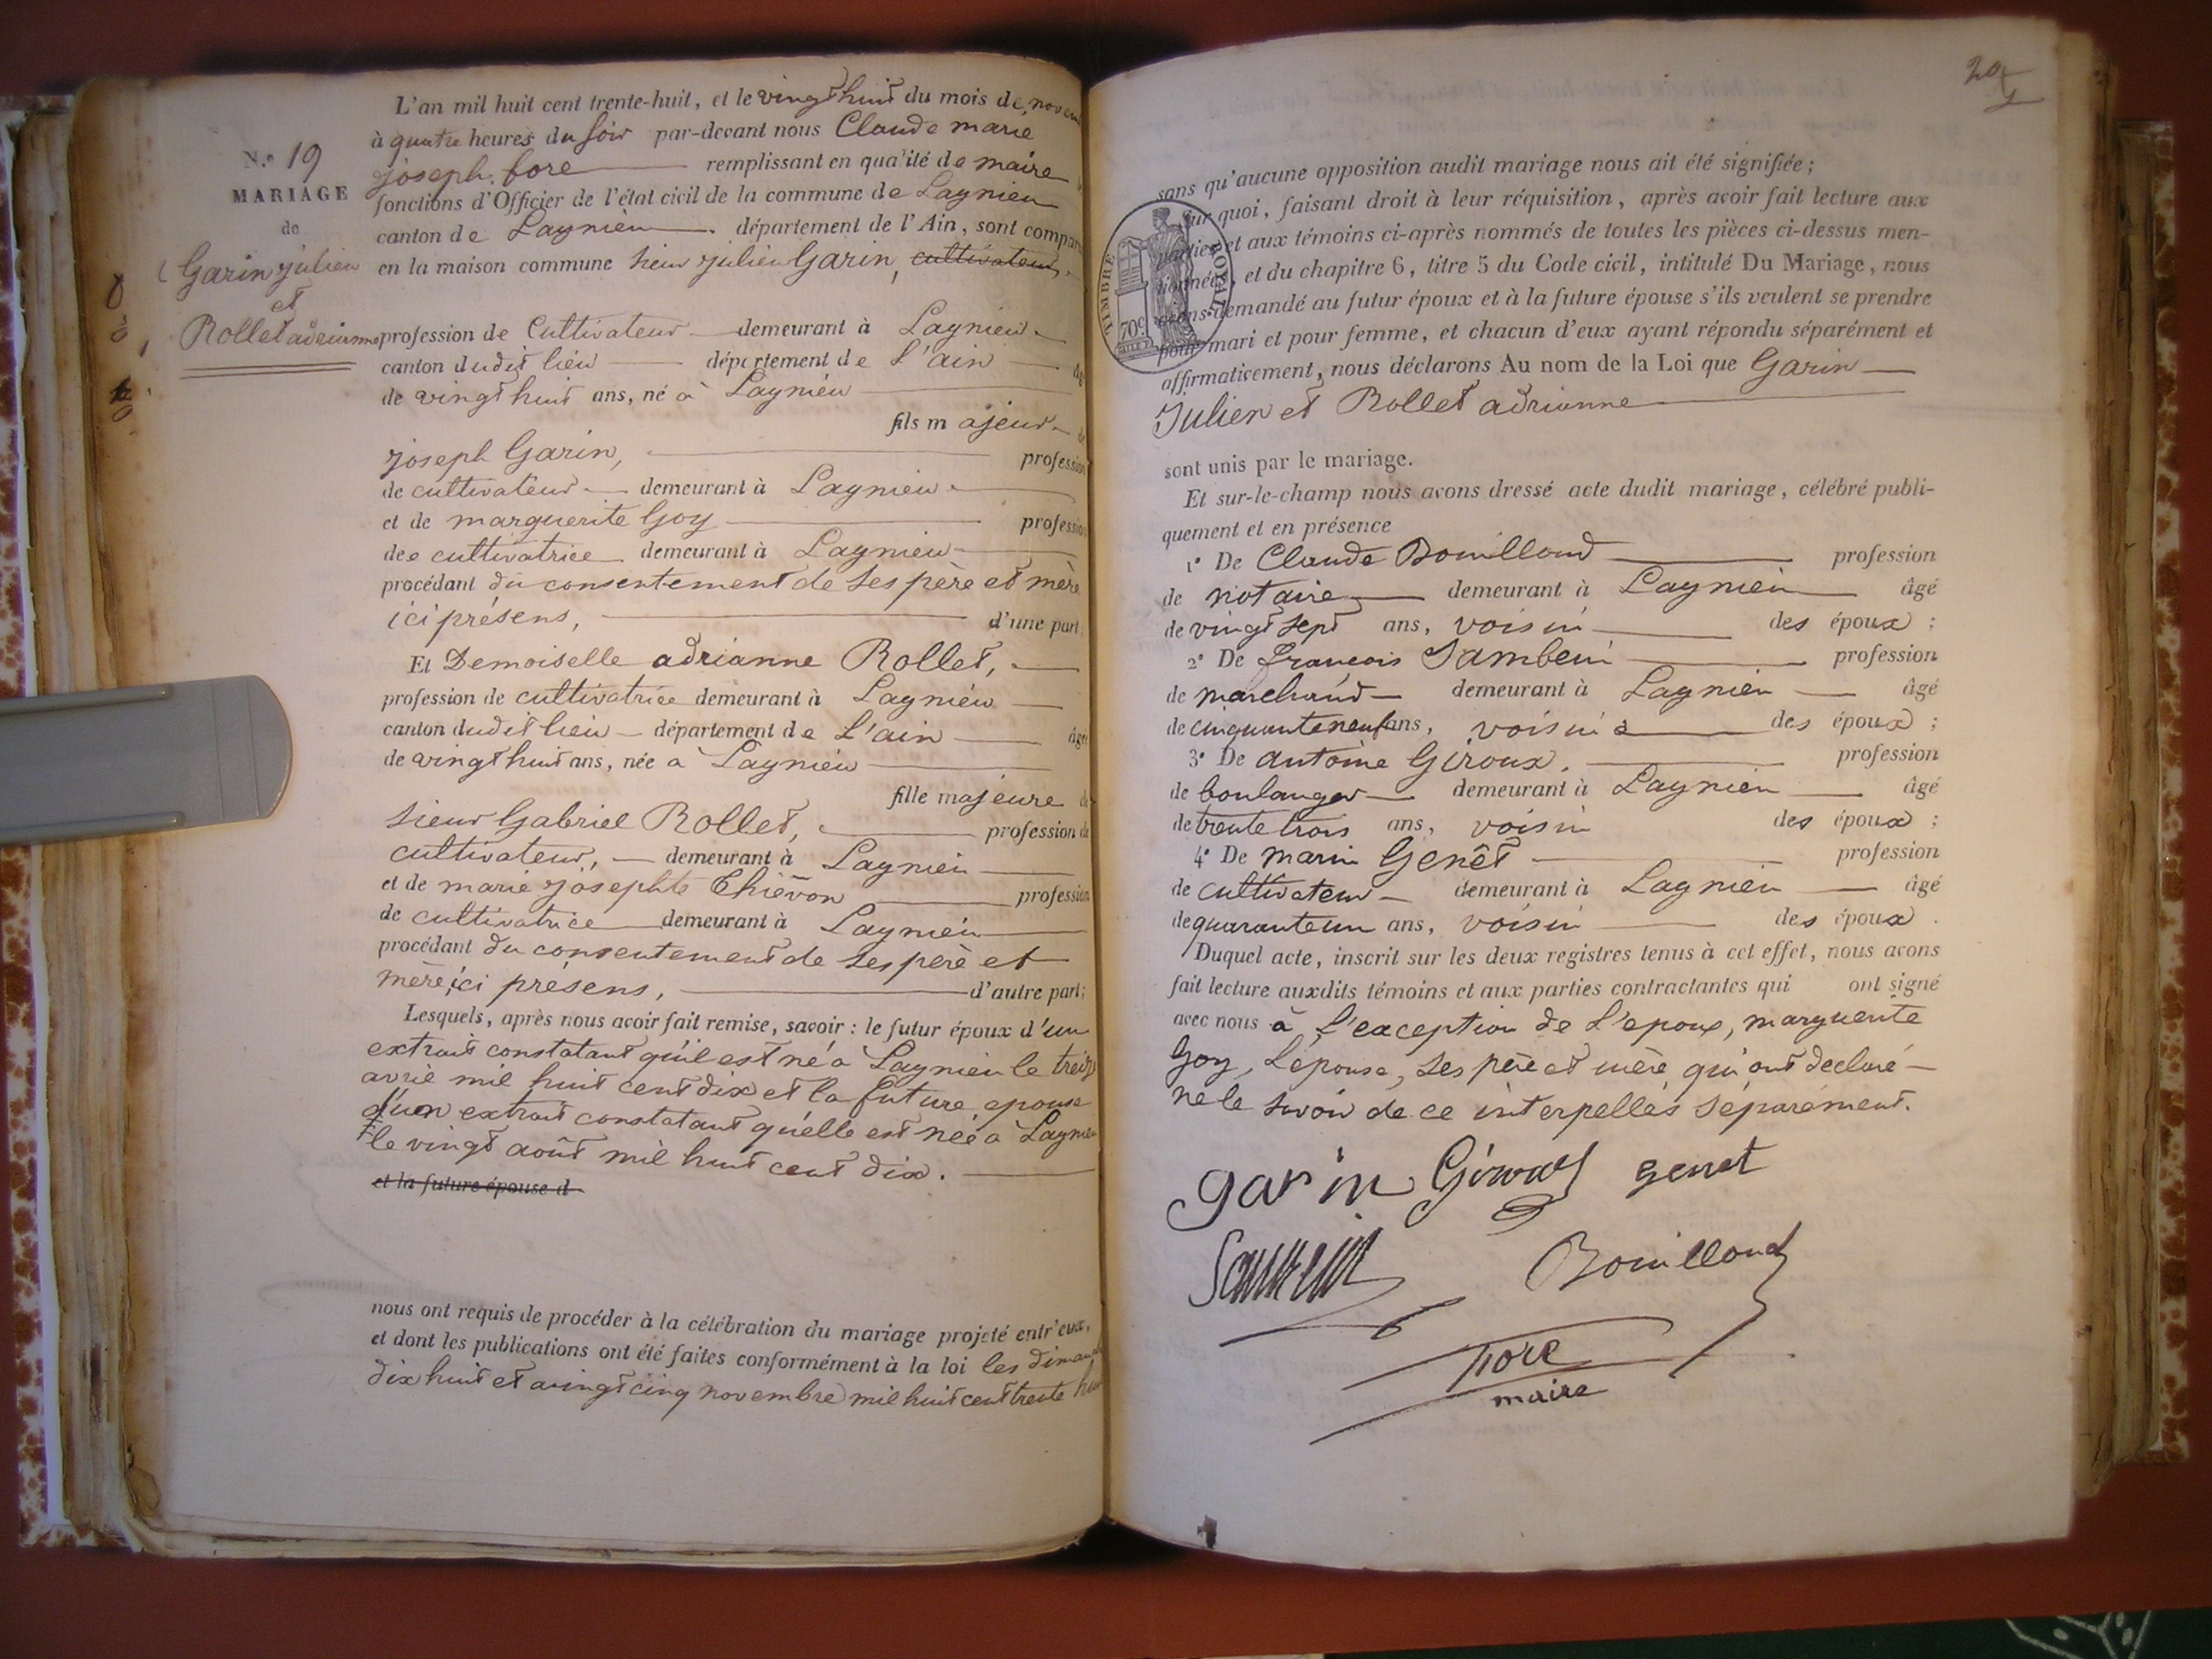 L'an mil huit cent trente-huit, et le vingt huit du mois de novem
à quatre heures du soir par-devant nous Claude marie
joseph fore remplissant en qualité de maire
fonctions d'Officier de l'état civil de la commune de Lagnieu
canton de Lagnieu département de l'Ain, sont compar
en la maison commune sieur julien Garin, cultivateur,
N.o 19
MARIAGE
de
Garin julien
et
Rollet adrianne
profession de Cultivateur demeurant à Lagnieu
canton dudit lieu département de L'ain âg
de vingt huit ans, né à Lagnieu
fils majeur de
joseph Garin, profession
de cultivateur demeurant à Lagnieu
et de marguerite Goy profession
de cultivatrice demeurant à Lagnieu
procédant du consentement de ses père et mère
ici présens, d'une part;
Et Demoiselle adrianne Rollet,
profession de cultivatrice demeurant à Lagnieu
canton dudit lieu département de L'ain âgée
de vingt huit ans, née à Lagnieu
fille majeure de
sieur Gabriel Rollet, profession de
cultivateur, demeurant à Lagnieu
et de marie josephte Thiévon profession
de cultivatrice demeurant à Lagnieu
procédant du consentement de ses père et
mère, ici présens, d'autre part;
Lesquels, après nous avoir fait remise, savoir: le futur époux d'un
extrait constatant qu'il est né à Lagnieu le treize
avril mil huit cent dix et la future epouse
d'un extrait constatant qu'elle est née à Lagnieu
le vingt août mil huit cent dix.
et la future épouse d
nous ont requis de procéder à la célébration du mariage projeté entr'eux,
et dont les publications ont été faites conformément à la loi les diman
dix huit et vingt cinq novembre mil huit cent trente hui
sans qu'aucune opposition audit mariage nous ait été signifiée;
Sur quoi, faisant droit à leur réquisition, après avoir fait lecture aux
parties et aux témoins ci-après nommés de toutes les pièces ci-dessus men-
tionnées, et du chapitre 6, titre 5 du Code civil, intitulé Du Mariage, nous
avons demandé au futur époux et à la future épouse s'ils veulent se prendre
pour mari et pour femme, et chacun d'eux ayant répondu séparément et
affirmativement, nous déclarons Au nom de la Loi que Garin
Julien et Rollet adrianne
TIMBRE ROYAL
70c
sont unis par le mariage.
Et sur-le-champ nous avons dressé acte dudit mariage, célébré publi-
quement et en présence
1° De Claude Bouilloud profession
de notaire demeurant à Lagnieu âgé
de vingt sept ans, voisin des époux;
2° De François Sambein profession
de marchand demeurant à Lagnieu âgé
de cinquante neuf ans, voisin des époux;
3° De antoine Giroux, profession
de boulanger demeurant à Lagnieu âgé
de trente trois ans, voisin des époux;
4° De marin Genêt profession
de cultivateur demeurant à Lagnieu âgé
de quarante un ans, voisin des époux.
Duquel acte, inscrit sur les deux registres tenus à cet effet, nous avons
fait lecture auxdits témoins et aux parties contractantes qui ont signé
avec nous à L'exception de L'epoux, marguerite
Goy, L'epouse, ses père et mère qui ont declaré
ne le savoir de ce interpellés séparément.
garin Giroux genet
Sambein Bouilloud
fore
maire